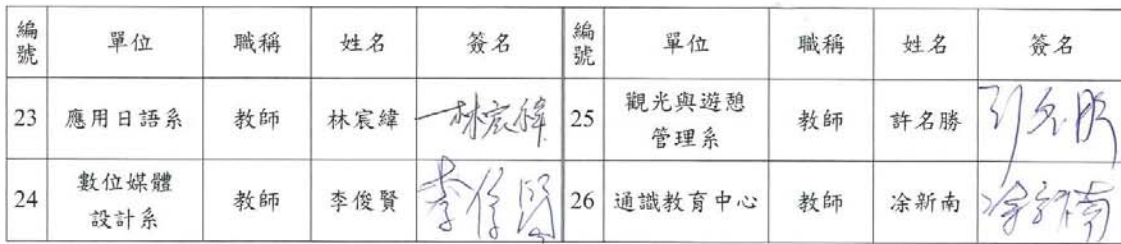 編號 單位 職稱 姓名 簽名 編號 單位 職稱 姓名 簽名
23 應用日語系 教師 林宸緯 林宸緯 25 觀光與遊憩管理系 教師 許名勝 許名勝
24 數位媒體設計系 教師 李俊賢 李俊賢 26 通識教育中心 教師 凃新南 凃新南